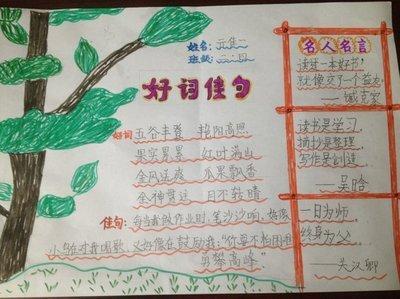 姓名:元佳二
班级:二.四
好词佳句
好词 五谷丰登 艳阳高照
果实累累 红叶满山
金风送爽 瓜果飘香
全神贯注 目不转睛
佳句:每当我做作业时,笔沙沙响,好像
小鸟在对我唱歌,又好像在鼓励我:"你要不怕困难
勇攀高峰"
名人名言
读过一本好书!
就像交了一个益友
——臧克家
读书是学习,
摘抄是整理,
写作是创造
——吴晗
一日为师
终身为父
——关汉卿